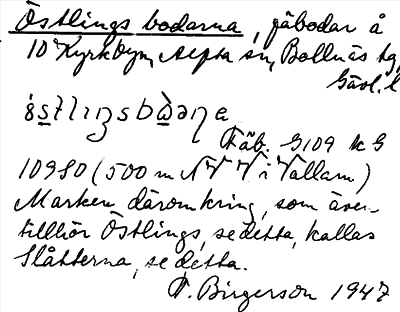 Östlings bodarna, fäbodar å
10 Kyrkbyn, Alfta sn, Bollnäs tg,
Gävl. l
Fäb. G109 k G
10980 (500 m NV V i Vallam)
Marken däromkring, som även
tillhör Östlings, se detta, kallas
Slåtterna, se detta.
F. Birgerson 1947